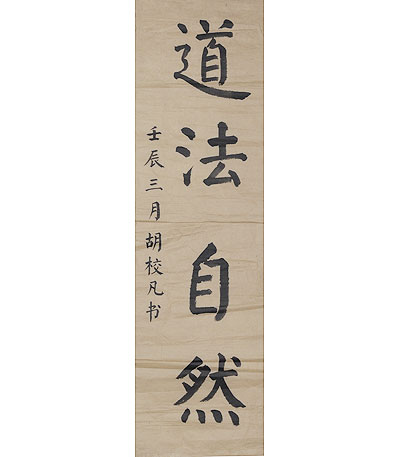 道法自然
壬辰三月胡校凡书